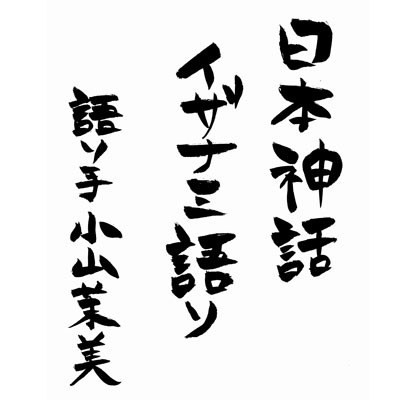 日本神話
イザナミ語り
語り手小山茉美